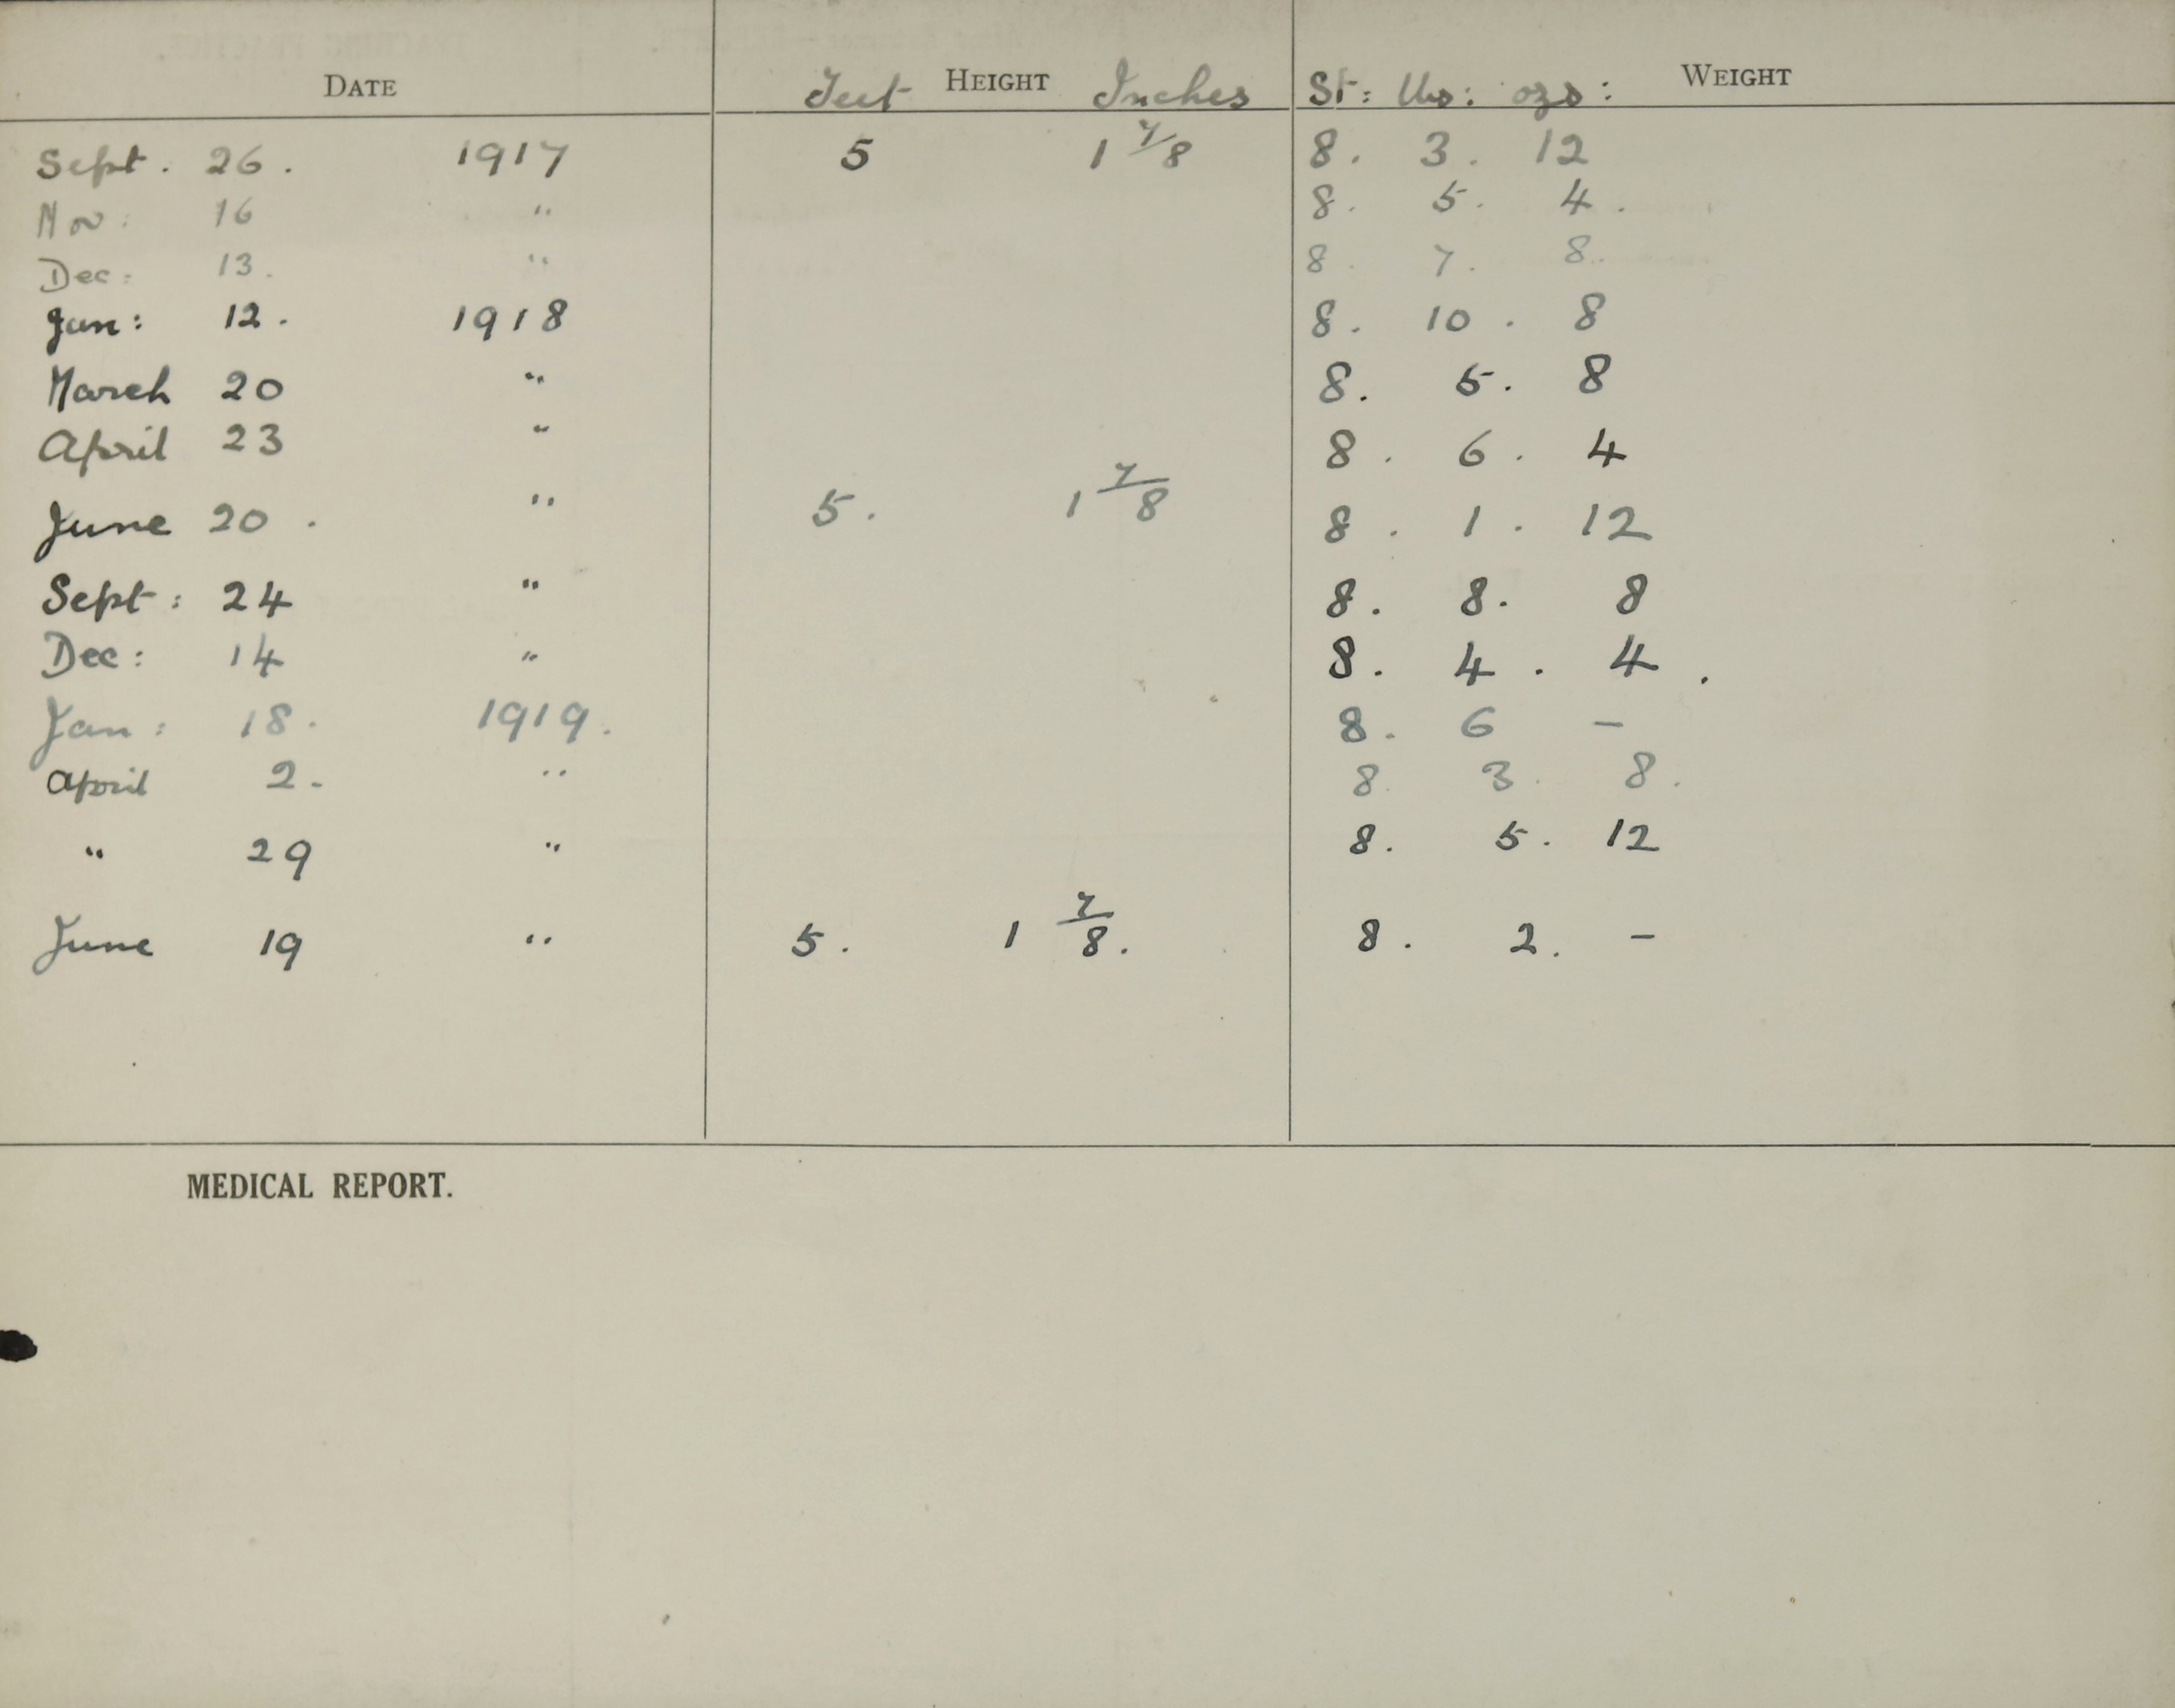 DATE Feet HEIGHT Inches St: lbs: ozs: WEIGHT
Sept. 26. 1917 5 1 7/8 8. 3. 12
Nov: 16 " 8. 5. 4.
Dec: 13. " 8. 7. 8.
Jan: 12. 1918 8. 10. 8
March 20 " 8. 5. 8
April 23 " 8. 6. 4
June 20. " 5. 1 7/8 8. 1. 12
Sept: 24 " 8. 8. 8
Dec: 14 " 8. 4. 4.
Jan: 18. 1919. 8. 6 –
April 2. " 8. 3. 8.
" 29 " 8. 5. 12
June 19 " 5. 1 7/8. 8. 2. –
MEDICAL REPORT.